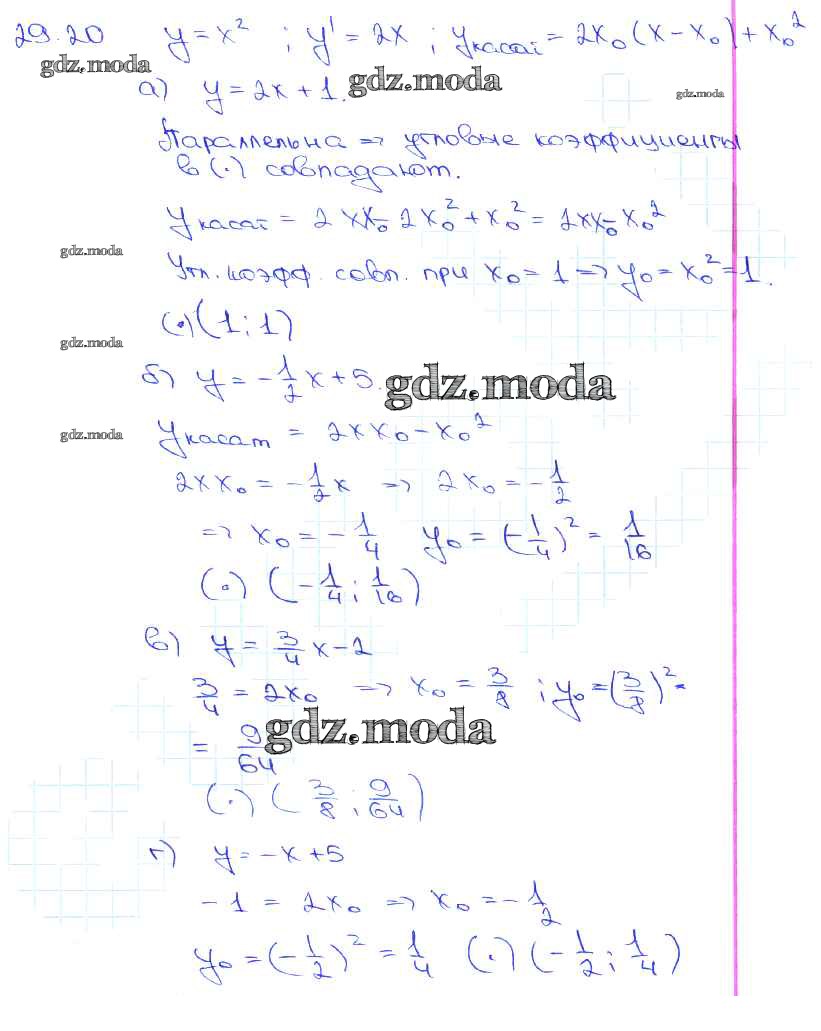 29.20 y = x² ; y' = 2x ; yкасат = 2x₀(x − x₀) + x₀²
gdz.moda
а) y = 2x + 1. gdz.moda gdz.moda
Параллельна ⇒ угловые коэффициенты
в (·) совпадают.
yкасат = 2xx₀ − 2x₀² + x₀² = 2xx₀ − x₀²
gdz.moda
Угл. коэфф. совп. при x₀ = 1 ⇒ y₀ = x₀² = 1.
(·) (1; 1)
gdz.moda
б) y = −1/2 x + 5. gdz.moda
gdz.moda yкасат = 2xx₀ − x₀²
2xx₀ = −1/2 x ⇒ 2x₀ = −1/2
⇒ x₀ = −1/4 y₀ = (−1/4)² = 1/16
(·) (−1/4; 1/16)
в) y = 3/4 x − 2
3/4 = 2x₀ ⇒ x₀ = 3/8 ; y₀ = (3/8)² =
= 9/64 gdz.moda
(·) (3/8; 9/64)
г) y = −x + 5
−1 = 2x₀ ⇒ x₀ = −1/2
y₀ = (−1/2)² = 1/4 (·) (−1/2; 1/4)